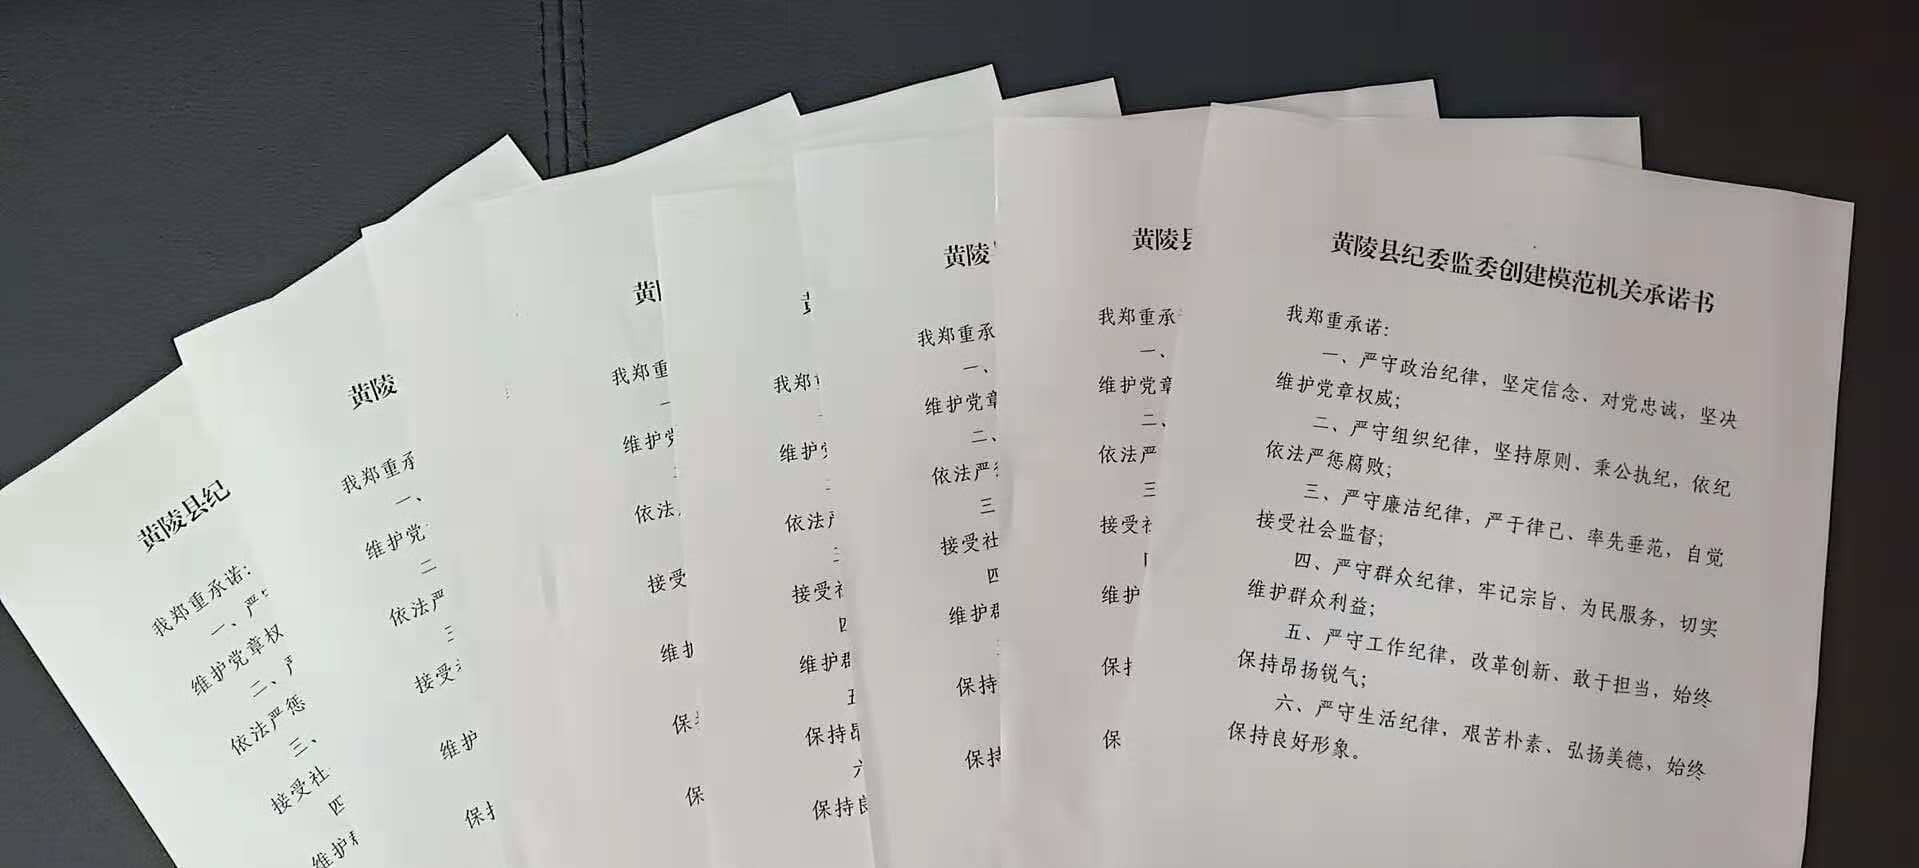 黄陵县纪
我郑重承诺:
一、严
维护党章权
二、严
依法严惩
三、
接受社
四
维护
黄陵
我郑重承
一、
维护党
二
依法严
三
接受
维护
保
黄
我郑重
维护
依法
接受
维护
保
保
我郑
维护
依法严
接受社
四
维护群
五
保持昂
六
保持良
黄陵
我郑重承
一、
维护党章
二、
依法严
三
接受社
四
维护群
保持
保持
黄陵县
我郑重承
一、
维护党章
二、
依法严
三
接受社
四
维护
保持
保
黄陵县纪委监委创建模范机关承诺书
我郑重承诺:
一、严守政治纪律，坚定信念、对党忠诚，坚决
维护党章权威;
二、严守组织纪律，坚持原则、秉公执纪，依纪
依法严惩腐败;
三、严守廉洁纪律，严于律己、率先垂范，自觉
接受社会监督;
四、严守群众纪律，牢记宗旨、为民服务，切实
维护群众利益;
五、严守工作纪律，改革创新、敢于担当，始终
保持昂扬锐气;
六、严守生活纪律，艰苦朴素、弘扬美德，始终
保持良好形象。